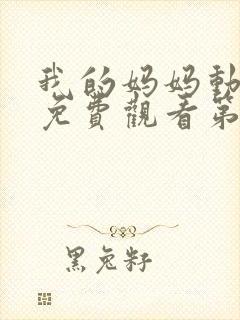 我的妈妈動
免費觀看第
黑兔籽